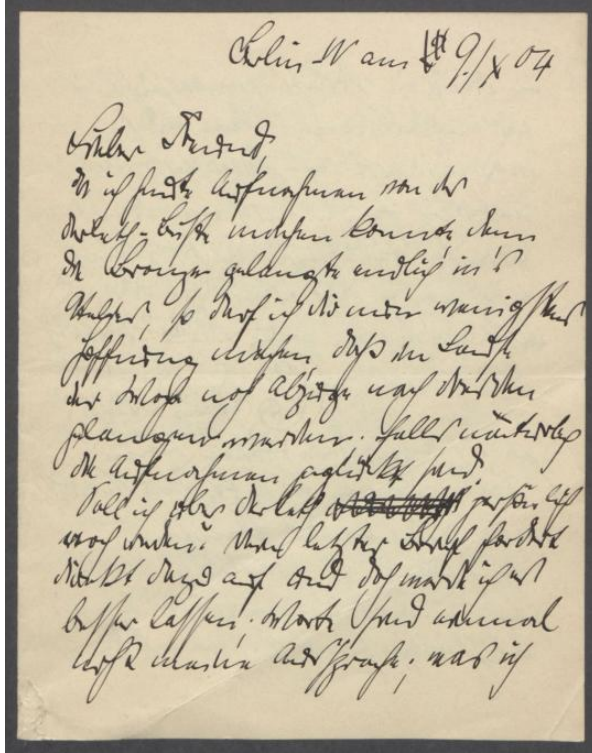 Berlin W am 9./X 04
Lieber Freund,
da ich heute Aufnahmen von der
Derleth-Büste machen konnte, denn
die Bronze gelangte endlich in's
Atelier, so darf ich die nun wenigstens
Hoffnung machen, daß im Laufe
der Woche noch Abzüge nach Dresden
gelangen werden. Falls natürlich
die Aufnahmen geglückt sind.
Soll ich über Derleth persönlich
noch reden? Dein letzter Brief fordert
direkt dazu auf und doch werde ich es
besser lassen. Worte sind einmal
nicht meine Aussprache; was ich